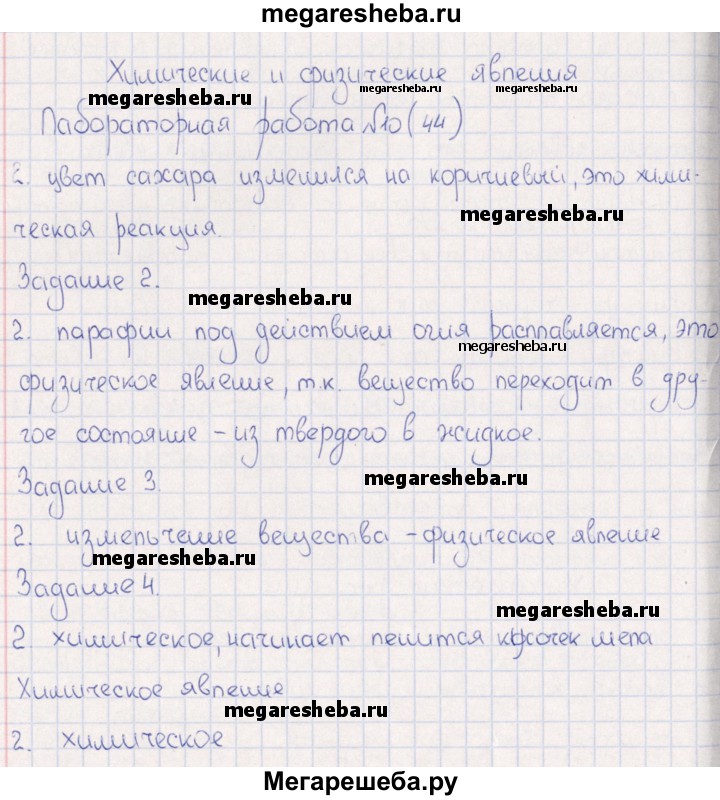 megaresheba.ru
Химические и физические явления
megaresheba.ru megaresheba.ru megaresheba.ru
Лабораторная работа №10 (44)
2. цвет сахара изменился на коричневый, это хими-
megaresheba.ru
ческая реакция.
Задание 2.
megaresheba.ru
2. парафин под действием огня расплавляется, это
megaresheba.ru
физическое явление, т.к. вещество переходит в дру-
гое состояние - из твердого в жидкое.
megaresheba.ru
Задание 3.
2. измельчение вещества - физическое явление
megaresheba.ru
Задание 4.
megaresheba.ru
2. химическое, начинает пенится кусочек мела
Химическое явление
megaresheba.ru
2. химическое
Мегарешеба.ру